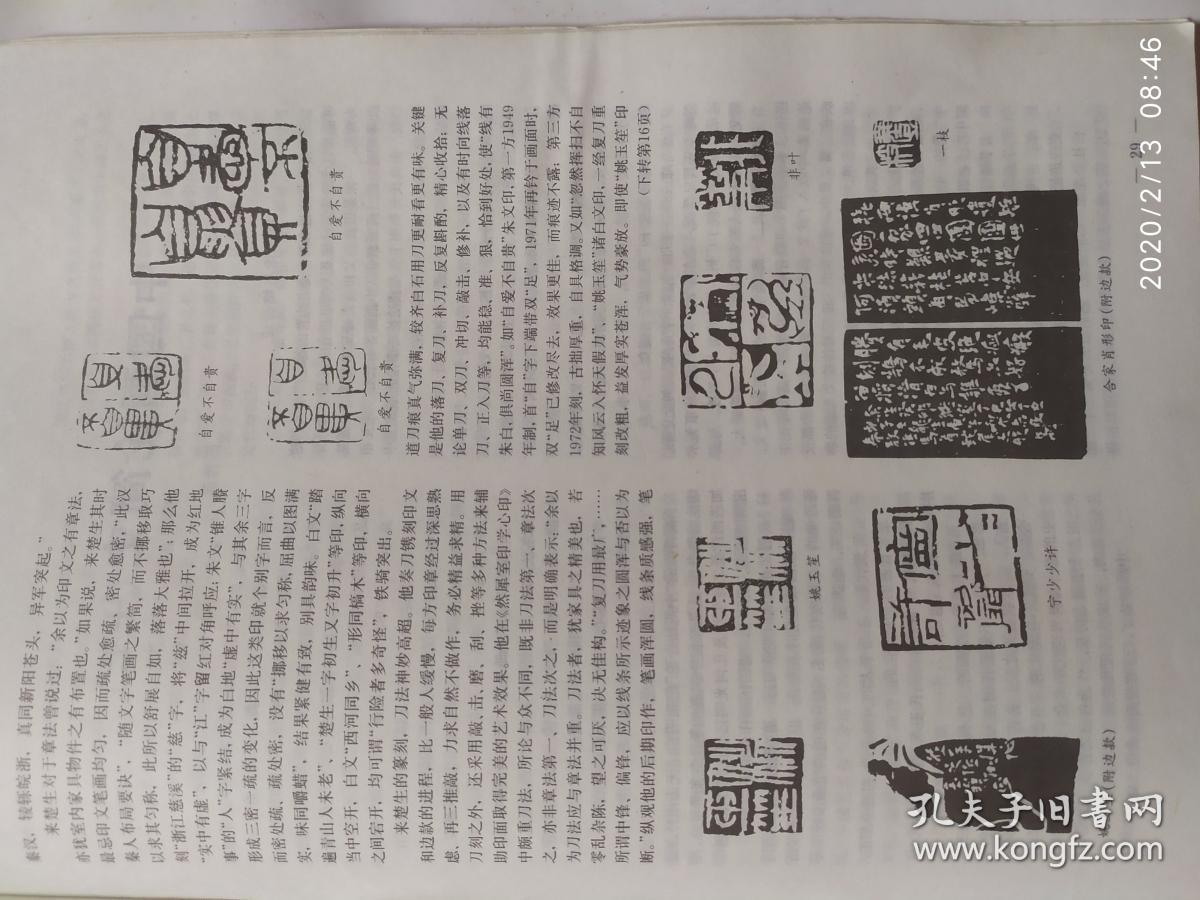 秦汉，棱轹皖浙，真同新阳苍头，异军突起。”
来楚生对于章法曾说过：“余以为印文之有章法，
亦犹室内家具物件之有布置也。”如果说，来楚生其时
最忌印文笔画均匀，因而疏处愈疏，密处愈密，“此汉
秦人布局要诀”、“随文字笔画之繁简，而不挪移取巧
以求其匀称，此所以舒展自如，落落大雅也”；那么他
刻“浙江慈溪”的“慈”字，将“兹”中间拉开，成为红地
“实中有虚”，以与“江”字留红对角呼应；朱文“雒人賸
事”的“人”字紧结，成为白地“虚中有实”，与其余三字
形成三密一疏的变化，因此这类印就个别字而言，反
而密处疏，疏处密，没有“挪移以求匀称，屈曲以图满
实，味同嚼蜡”，结果紧健有致，别具韵味。白文“踏
遍青山人未老”、“楚生一字初生又字初升”等印，纵向
当中空开，白文“西河同乡”、“形同槁木”等印，横向
之间宕开，均可谓“行险者多奇怪”，铁骑突出。
来楚生的篆刻，刀法神妙高超。他奏刀镌刻印文
和边款的进程，比一般人缓慢，每方印章经过深思熟
虑，再三推敲，力求自然不做作，务必精益求精。用
刀刻之外，还采用敲、击、磨、刮、挫等多种方法来辅
助印面取得完美的艺术效果。他在《然犀室印学心印》
中颇重刀法，所论与众不同，既非刀法第一、章法次
之，亦非章法第一、刀法次之，而是明确表示：“余以
为刀法应与章法并重。刀法者，犹家具之精美也，若
零乱杂陈，望之可厌，决无佳构。”“复刀用最广，……
所谓中锋、偏锋，应以线条所示迹象之圆浑与否以为
断。”纵观他的后期印作，笔画浑圆，线条质感强，笔
自爱不自贵
自爱不自贵
自爱不自贵
道刀痕真气弥满，较齐白石用刀更耐看更有味。关键
是他的落刀、复刀、补刀，反复斟酌，精心收拾；无
论单刀、双刀、冲切、敲击、修补，以及有时向线落
刀、正入刀等，均能稳、准、狠，恰到好处，使“线有
朱白，俱尚圆浑”。如“自爱不自贵”朱文印，第一方1949
年制，首“自”字下端带双“足”，1971年再钤于画面时，
双“足”已修改尽去，效果更佳，而痕迹不露；第三方
1972年刻，古拙厚重，自具格调。又如“忽然挥扫不自
知风云入怀天假力”、“姚玉笙”诸白文印，一经复刀重
刻改粗，益发厚实苍浑，气势豪放。即使“姚玉笙”印
（下转第16页）
姚玉笙
宁少少许
（附边款）
非叶
一枝
合家肖形印（附边款）
— 29 —
2020/2/13 08:46
孔夫子旧书网
www.kongfz.com